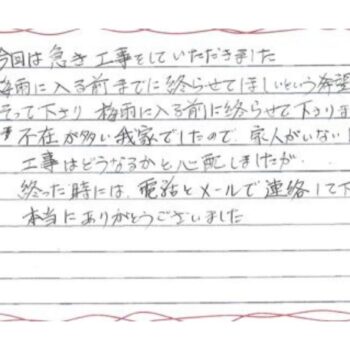 今回は急き工事をしていただきました
梅雨に入る前までに終らせてほしいという希望
そって下さり 梅雨に入る前に終らせて下りま
不在が多い我家でしたので、家人がいない
工事はどうなるかと心配しましたが、
終った時には、電話とメールで連絡して下
本当にありがとうございました